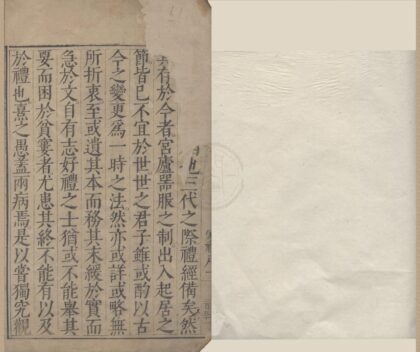 也三代之際禮經備矣然
存於今者宮廬器服之制出入起居之
節皆已不宜於世世之君子雖或酌以古
今之變更爲一時之法然亦或詳或略無
所折衷至或遺其本而務其末緩於實而
急於文自有志好禮之士猶或不能舉其
要而困於貧窶者尤患其終不能有以及
於禮也熹之愚蓋兩病焉是以嘗獨究觀